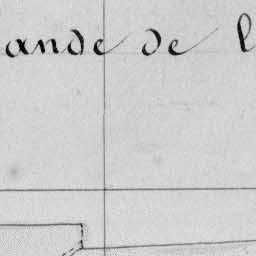 ande de l